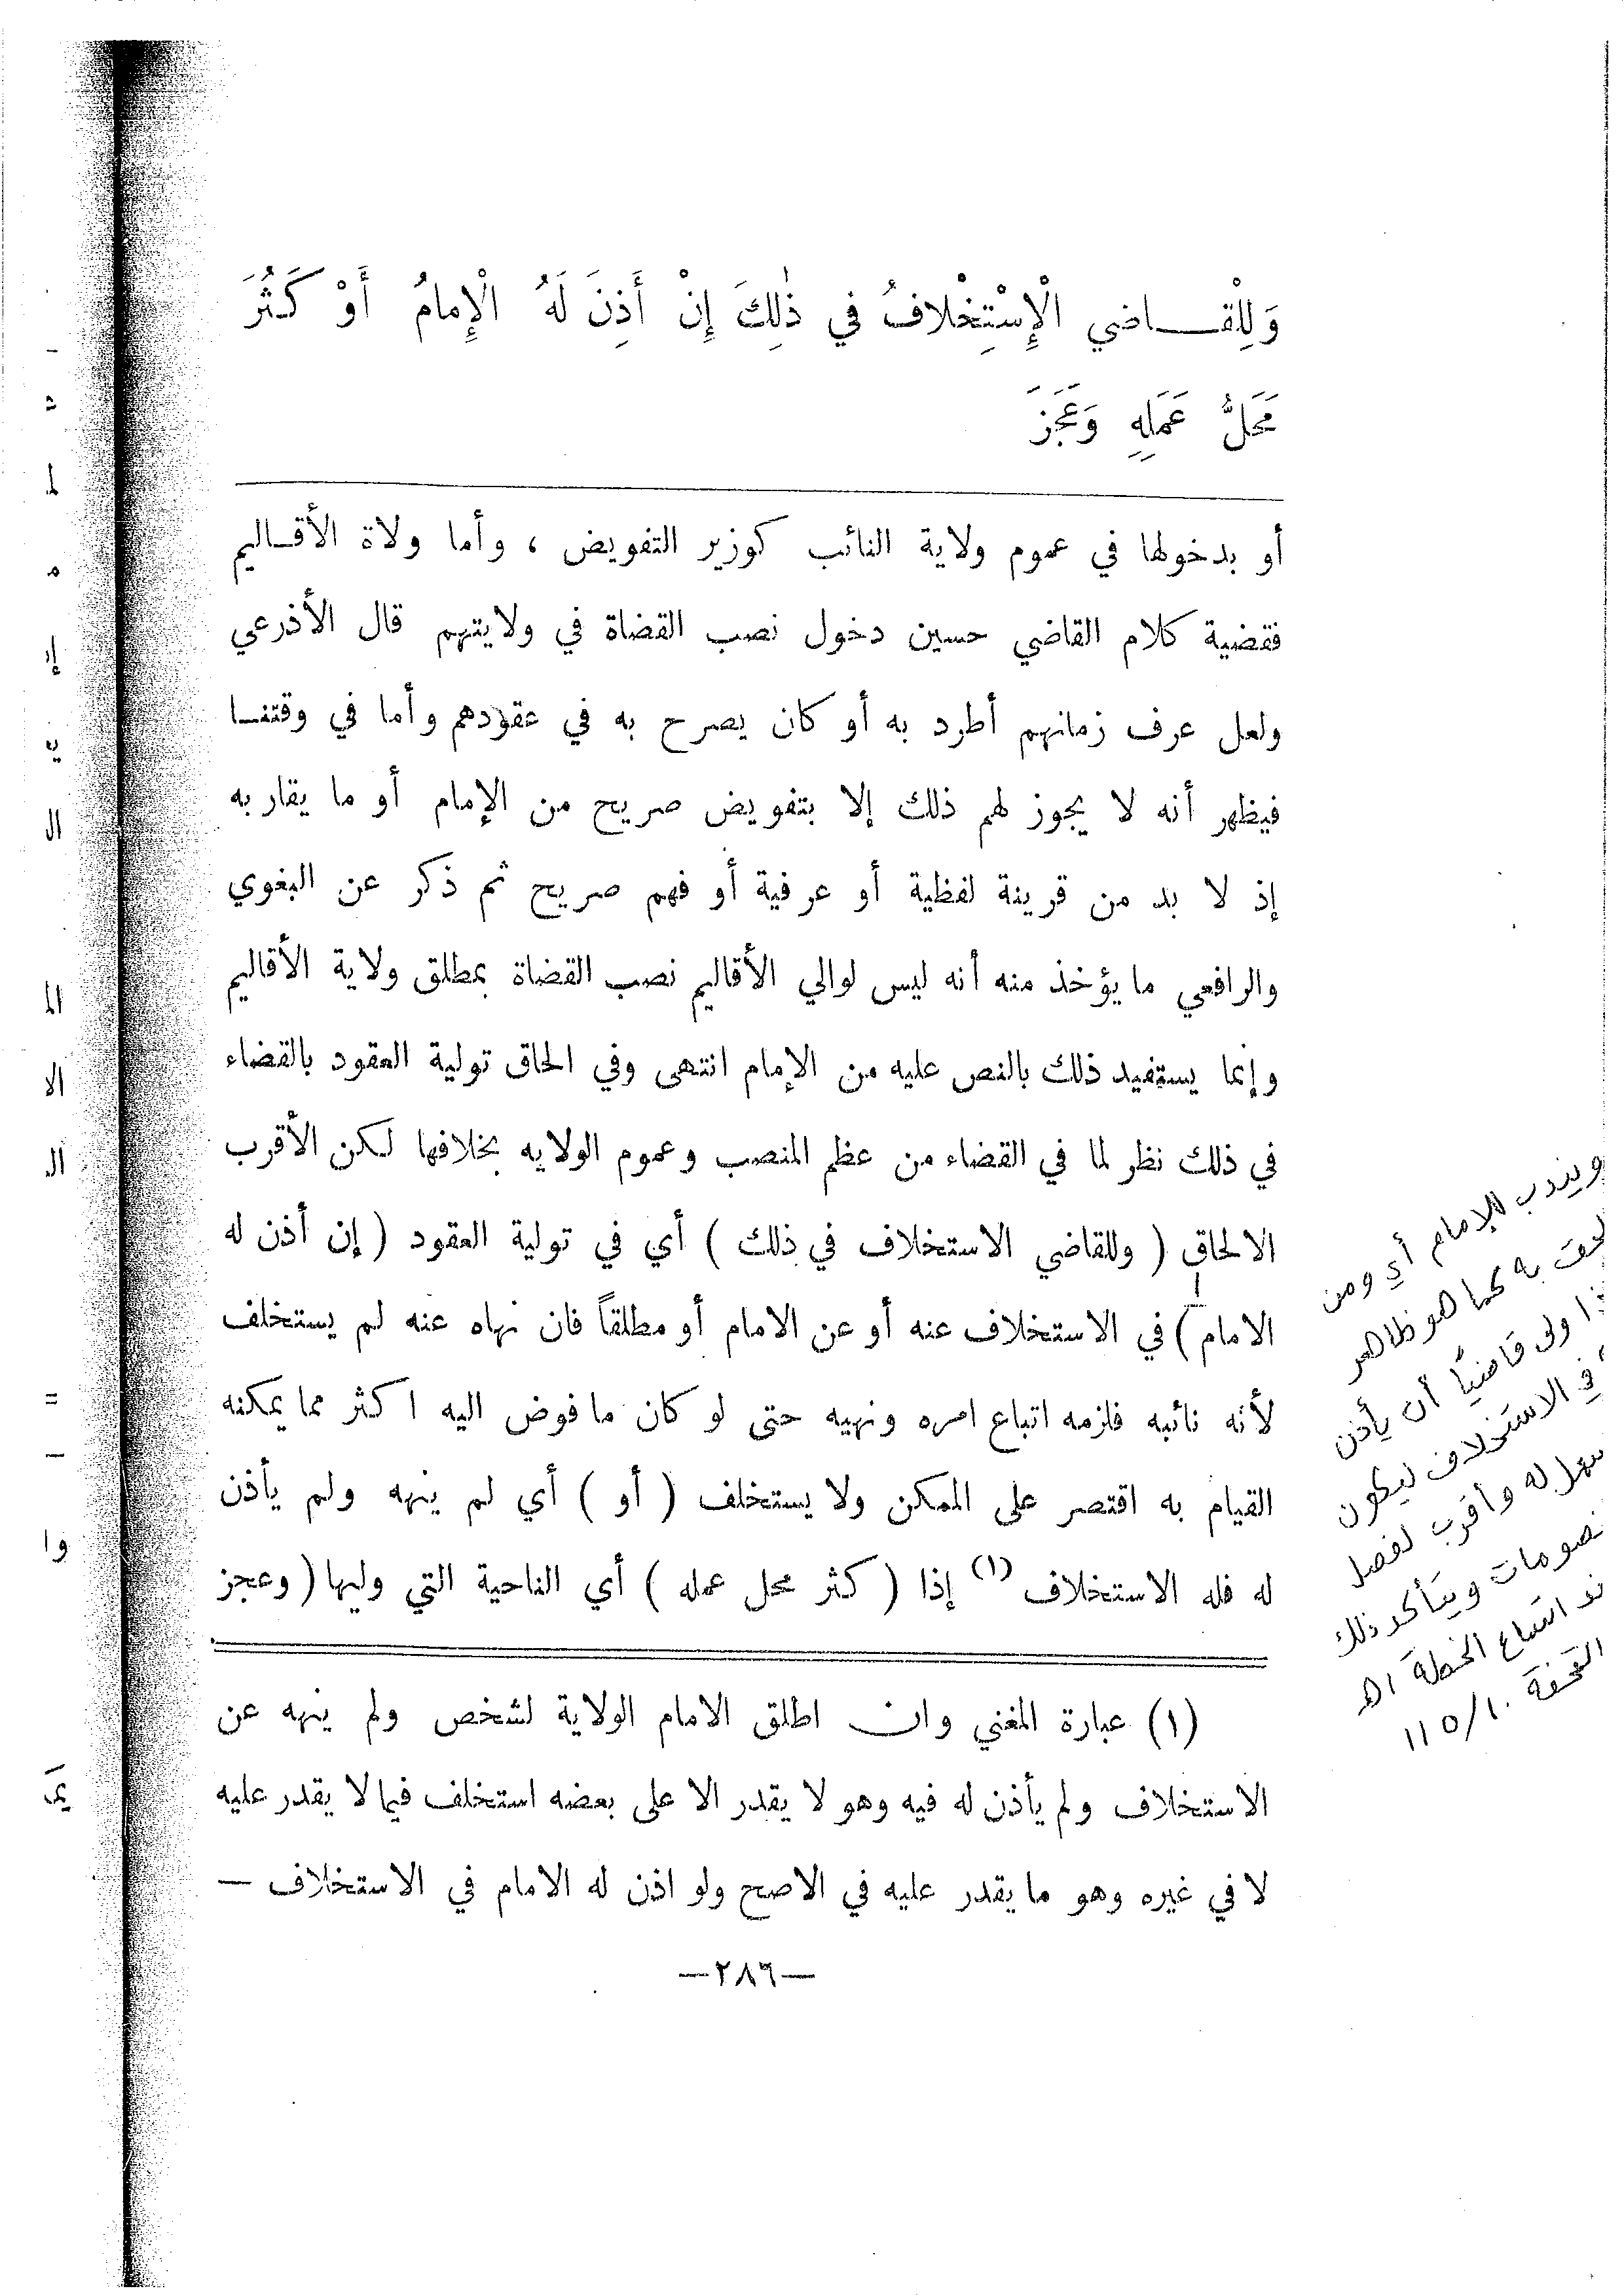 وَلِلْقَـــاضي الْإِسْتِخْلافُ في ذٰلِكَ إِنْ أَذِنَ لَهُ الْإِمامُ أَوْ كَثُرَ
مَحَلُّ عَمَلِهِ وَعَجَزَ
أو بدخولها في عموم ولاية النائب كوزير التفويض ، وأما ولاة الأقـاليم
فقضية كلام القاضي حسين دخول نصب القضاة في ولايتهم قال الأذرعي
ولعل عرف زمانهم أطرد به أو كان يصرح به في عقودهم وأما في وقتنـا
فيظهر أنه لا يجوز لهم ذلك إلا بتفويض صريح من الإمام أو ما يقاربه
إذ لا بد من قرينة لفظية أو عرفية أو فهم صريح ثم ذكر عن البغوي
والرافعي ما يؤخذ منه أنه ليس لوالي الأقاليم نصب القضاة بمطلق ولاية الأقاليم
وإنما يستفيد ذلك بالنص عليه من الإمام انتهى وفي الحاق تولية العقود بالقضاء
في ذلك نظر لما في القضاء من عظم المنصب وعموم الولايه بخلافها لكن الأقرب
الالحاق ( وللقاضي الاستخلاف في ذلك ) أي في تولية العقود ( إن أذن له
الامام ) في الاستخلاف عنه أو عن الامام أو مطلقاً فان نهاه عنه لم يستخلف
لأنه نائبه فلزمه اتباع امره ونهيه حتى لو كان ما فوض اليه اكثر مما يمكنه
القيام به اقتصر على الممكن ولا يستخلف ( أو ) أي لم ينهه ولم يأذن
له فله الاستخلاف (١) إذا ( كثر محل عمله ) أي الناحية التي وليها ( وعجز
(١) عبارة المغني وان اطلق الامام الولاية لشخص ولم ينهه عن
الاستخلاف ولم يأذن له فيه وهو لا يقدر الا على بعضه استخلف فيما لا يقدر عليه
لا في غيره وهو ما يقدر عليه في الاصح ولو اذن له الامام في الاستخلاف —
—٢٨٦—
ويندب للإمام أي ومن
به كما هو ظاهر
ولى قاضيًا أن يأذن
في الاستخلاف ليكون
له وأقرب لفصل
ويتأكد ذلك
اتساع الخطة اهـ
التحفة ١٠/١١٥